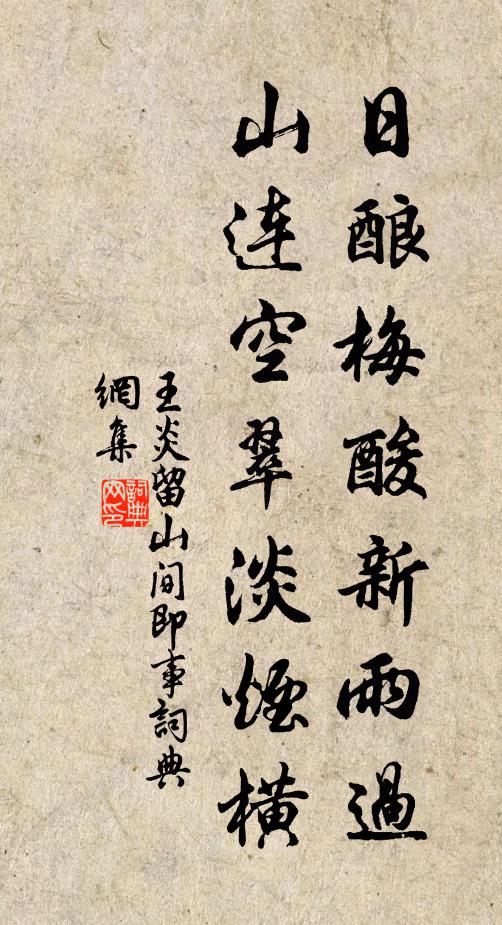 日酿梅酸新雨過
山連空翠淡煙橫
王炎留山间即事詞典
網集
詞典网印